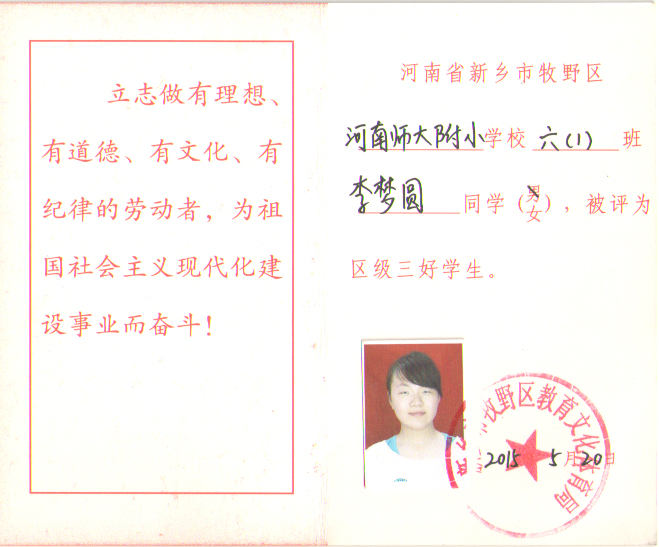 立志做有理想、
有道德、有文化、有
纪律的劳动者，为祖
国社会主义现代化建
设事业而奋斗！
河南省新乡市牧野区
河南师大附小学校 六(1) 班
李梦圆 同学（男女），被评为
区级三好学生。
市牧野区教育文化体育局
2015年5月20日